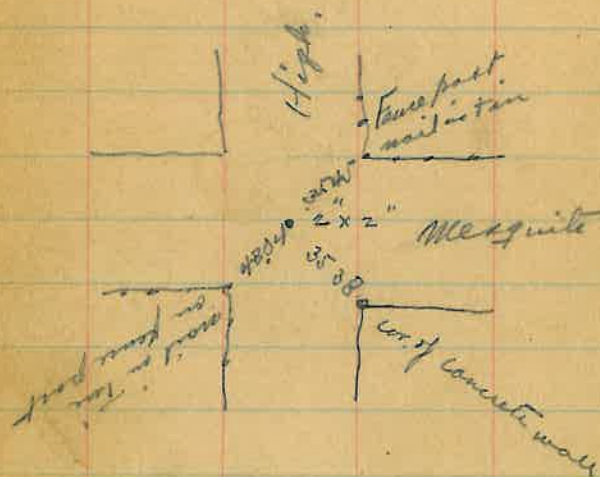 High.
Fence post
nail in tin
35.45
2" x 2"
Mesquite
43.04
35.08
nail in tin
on fence post
cor. of concrete wall